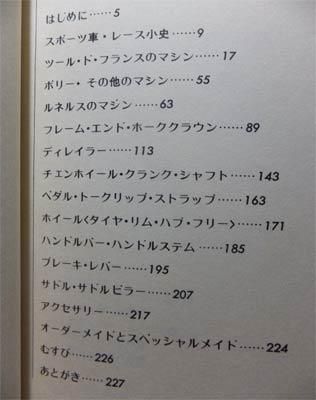 はじめに……5
スポーツ車・レース小史……9
ツール・ド・フランスのマシン……17
ポリー・その他のマシン……55
ルネルスのマシン……63
フレーム・エンド・ホーククラウン……89
ディレイラー……113
チェンホイール・クランク・シャフト……143
ペダル・トークリップ・ストラップ……163
ホイール〈タイヤ・リム・ハブ・フリー〉……171
ハンドルバー・ハンドルステム……185
ブレーキ・レバー……195
サドル・サドルピラー……207
アクセサリー……217
オーダーメイドとスペッシャルメイド……224
むすび……226
あとがき……227